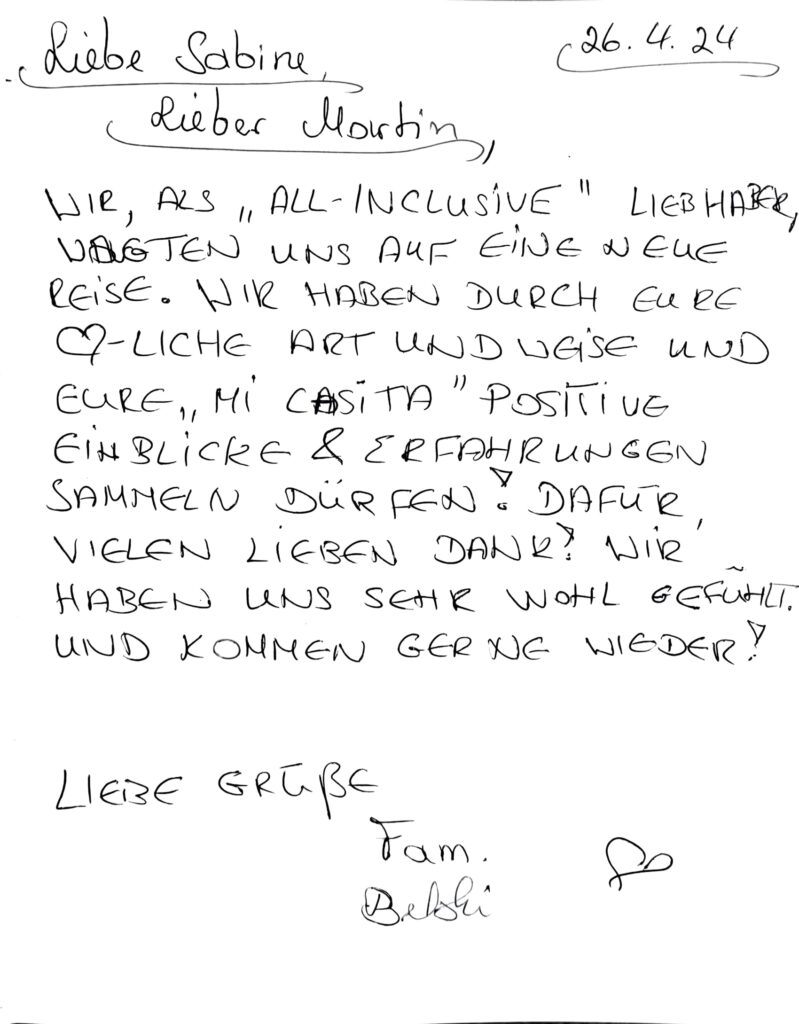 Liebe Sabine,
26.4.24
Lieber Martin,
WIR, ALS „ALL-INCLUSIVE" LIEBHABER,
WAGTEN UNS AUF EINE NEUE
REISE. WIR HABEN DURCH EURE
♡-LICHE ART UND WEISE UND
EURE „MI CASITA" POSITIVE
EINBLICKE & ERFAHRUNGEN
SAMMELN DÜRFEN! DAFÜR,
VIELEN LIEBEN DANK! WIR
HABEN UNS SEHR WOHL GEFÜHLT.
UND KOMMEN GERNE WIEDER!
LIEBE GRÜßE
Fam.